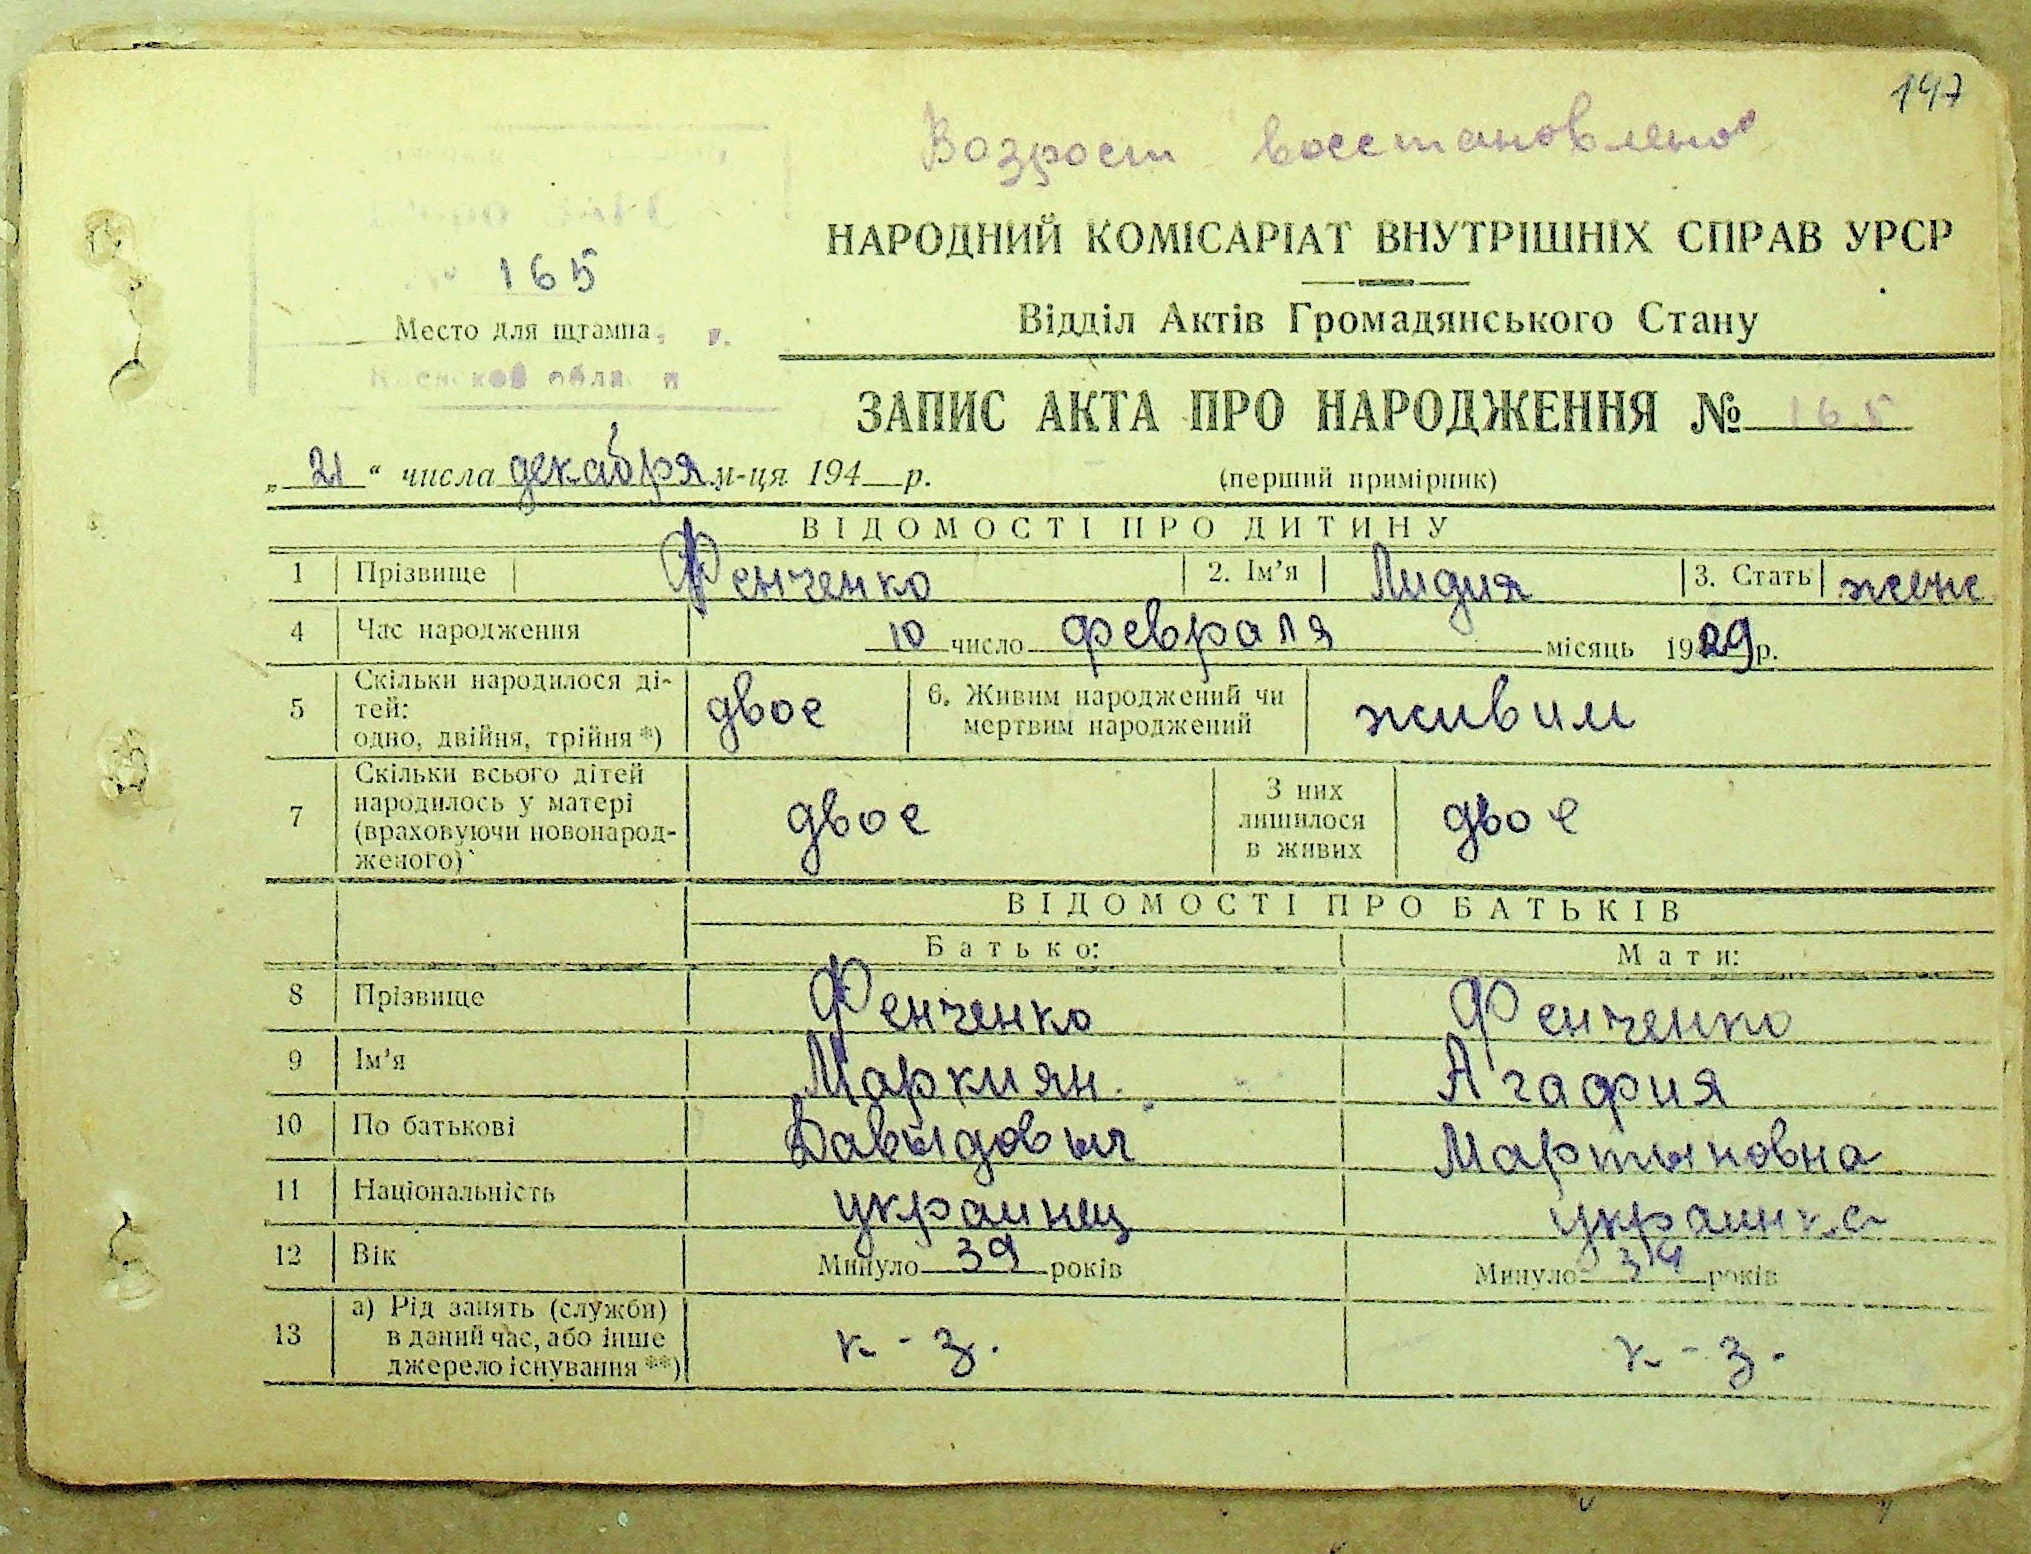 147
Возрост восстановлено
НАРОДНИЙ КОМІСАРІАТ ВНУТРІШНІХ СПРАВ УРСР
165
Відділ Актів Громадянського Стану
Место для щтампа
обла
ЗАПИС АКТА ПРО НАРОДЖЕННЯ № 165
„21“ числа декабря м-ця 194 р.
(перший примірник)
ВІДОМОСТІ ПРО ДИТИНУ
1 Прізвище Фенченко 2. Ім’я Лидия 3. Стать женс
4 Час народження 10 число февраля місяць 1929 р.
5 Скільки народилося ді-
тей:
одно, двійня, трійня *) двое 6. Живим народжений чи
мертвим народжений живим
7 Скільки всього дітей
народилось у матері
(враховуючи новонарод-
женого) двое З них
лишилося
в живих двое
ВІДОМОСТІ ПРО БАТЬКІВ
Батько: Мати:
8 Прізвище Фенченко Фенченко
9 Ім’я Маркиян Агафия
10 По батькові Давыдовыч Мартыновна
11 Національність украинец украинка
12 Вік Минуло 39 років Минуло 34 років
13 а) Рід занять (служби)
в даний час, або інше
джерело існування **) к-з. к-з.